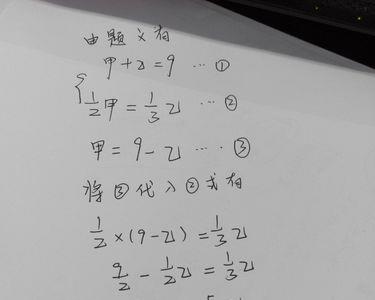 由题义有
甲+乙=9 … ①
1/2甲=1/3乙 … ②
甲=9-乙 … ③
将③代入②式有
1/2×(9-乙)=1/3乙
9/2-1/2乙=1/3乙